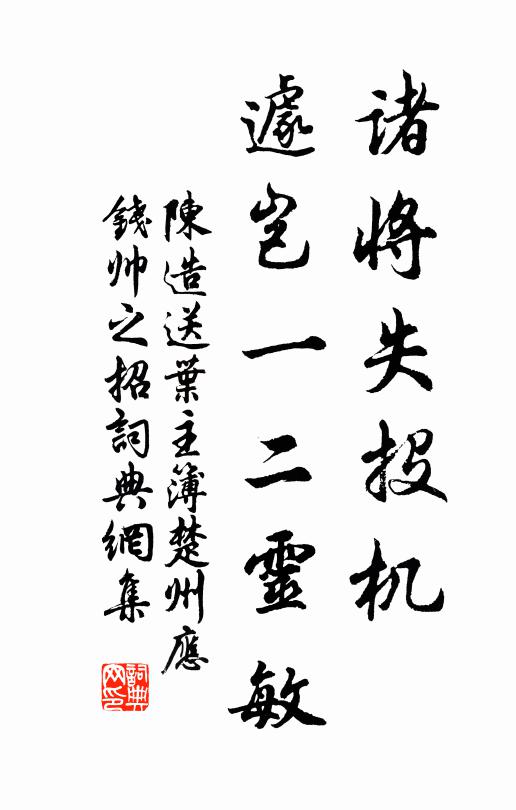 諸將失投机
遽豈一二靈敏
陳造送葉主簿楚州應
錢帅之招詞典網集
詞典网印